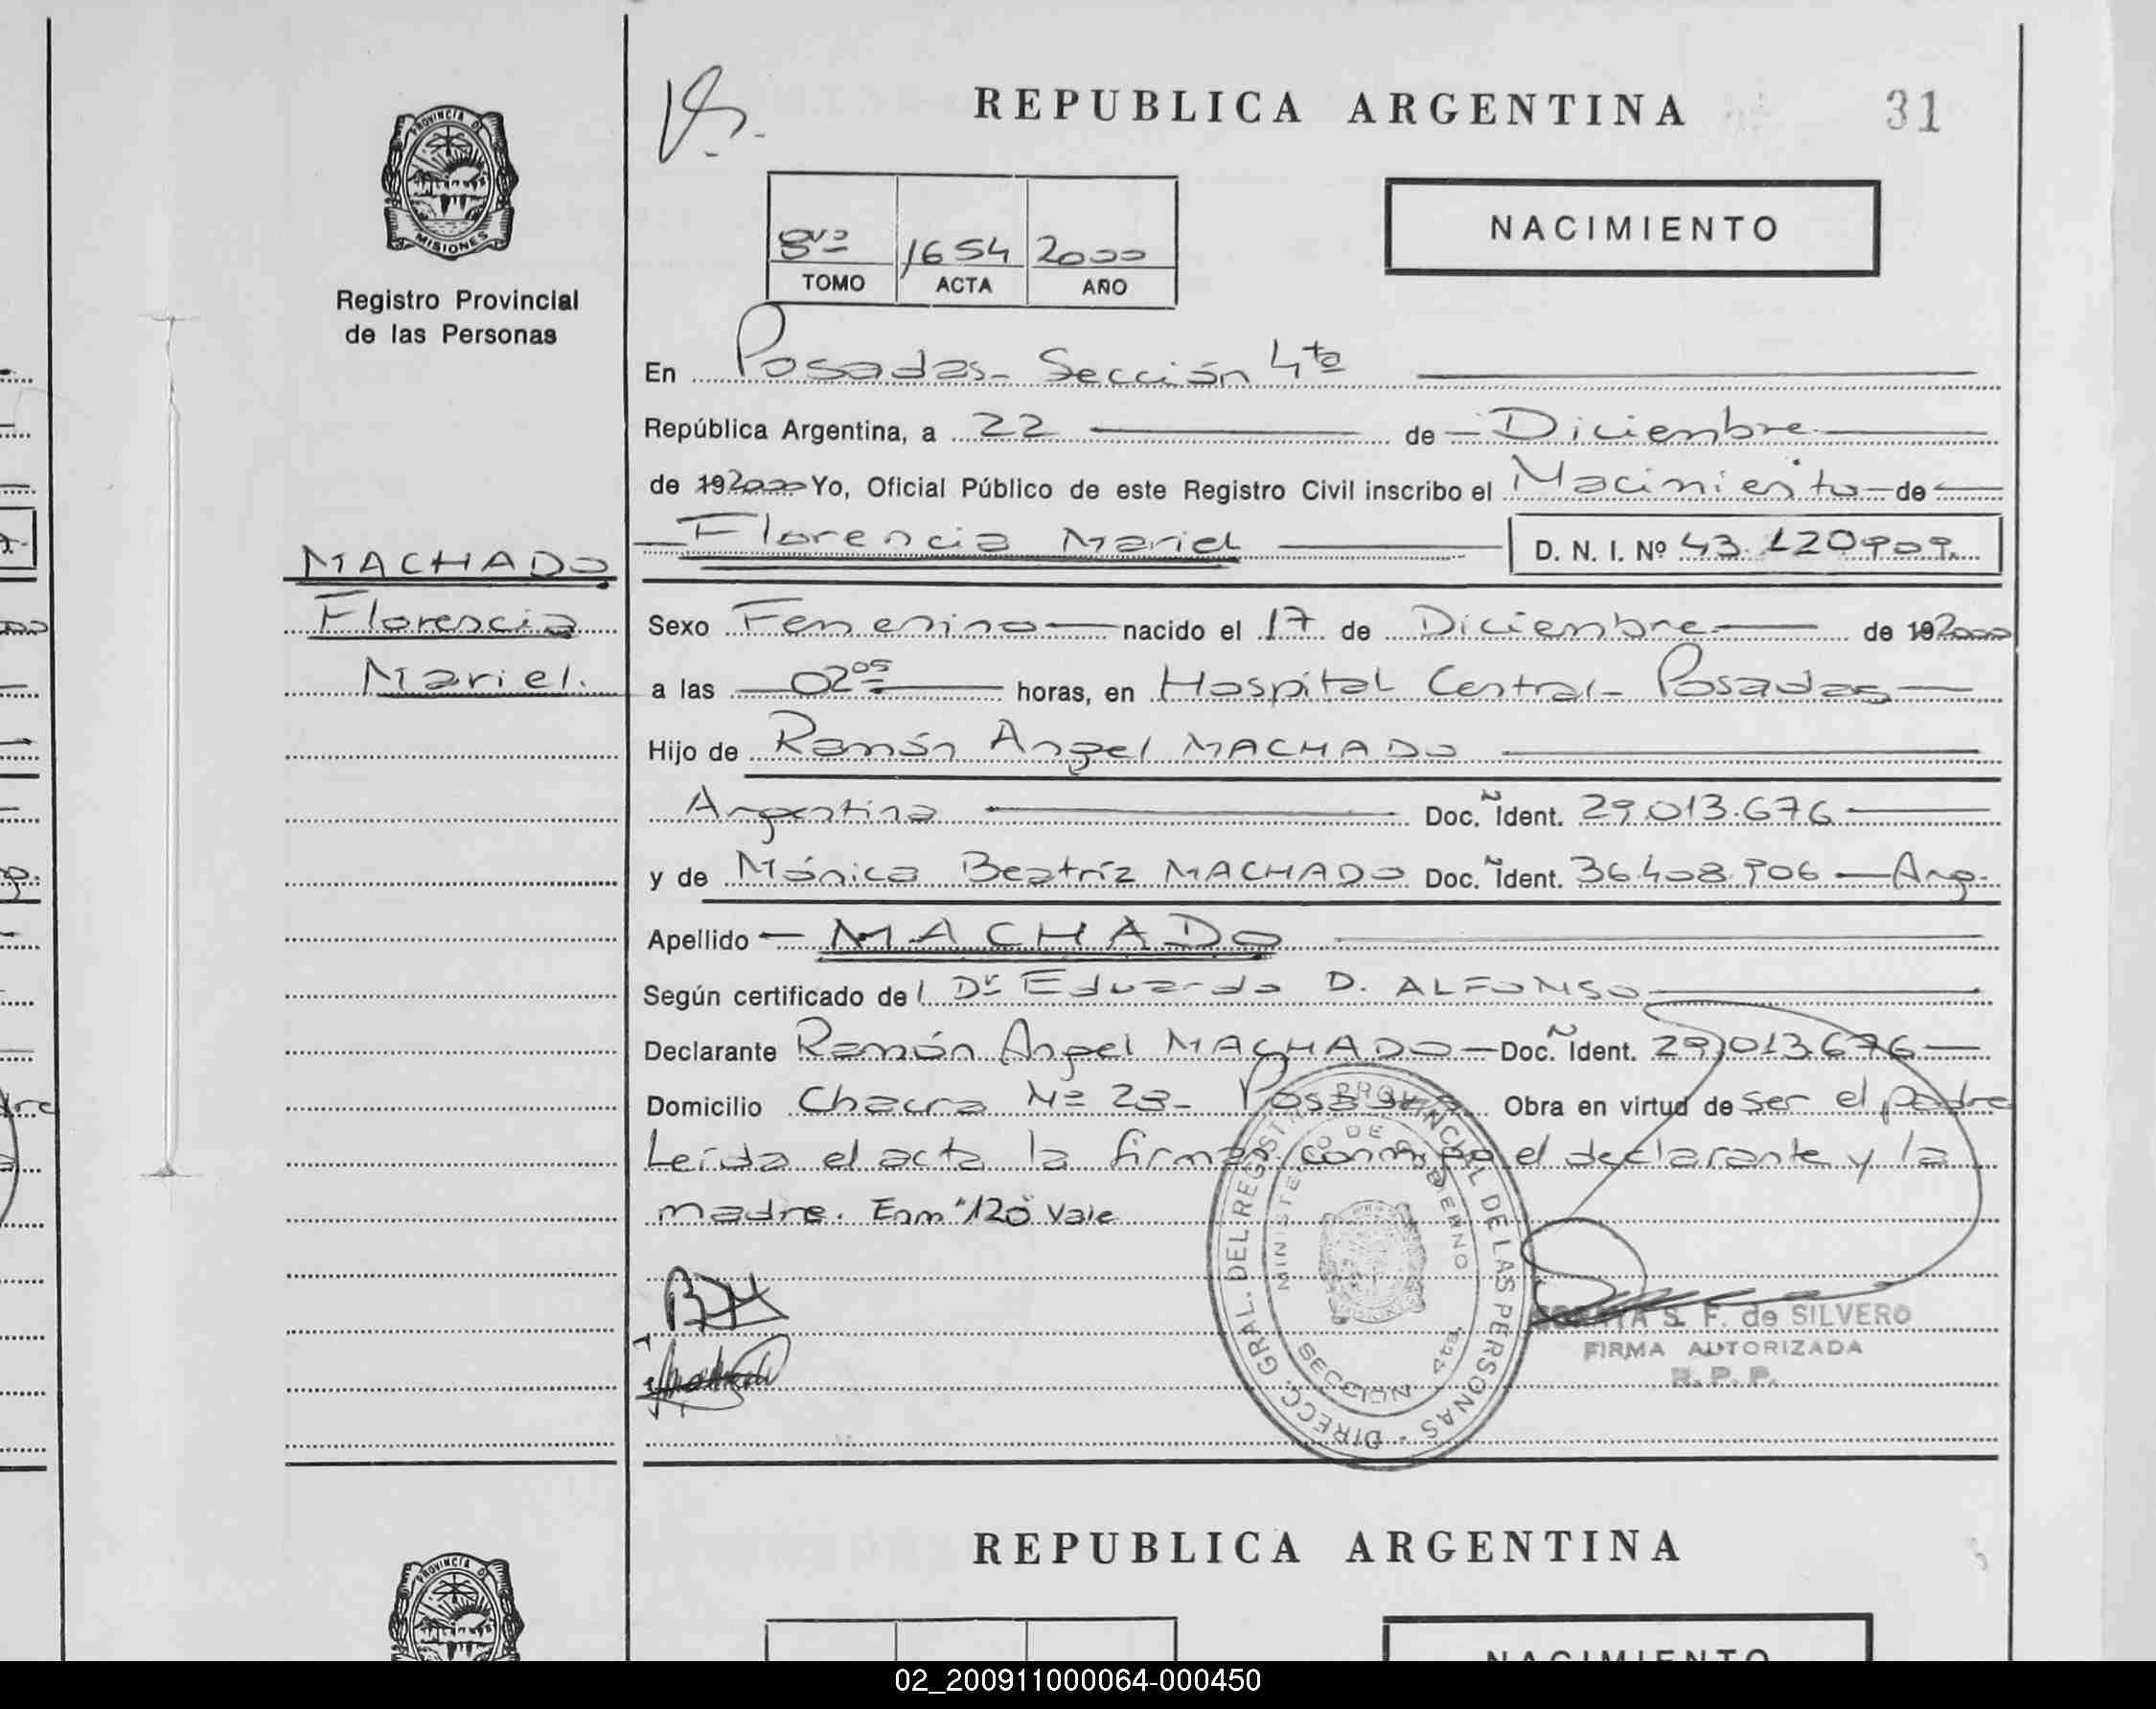 REPUBLICA ARGENTINA
31
PROVINCIA DE
MISIONES
Registro Provincial
de las Personas
8vo 1654 2000
TOMO ACTA AÑO
NACIMIENTO
En Posadas - Sección 4ta
República Argentina, a 22 de Diciembre
de 192000 Yo, Oficial Público de este Registro Civil inscribo el Nacimiento de
Florencia Mariel D. N. I. Nº 43.120909
MACHADO
Florencia
Mariel.
Sexo Femenino nacido el 17 de Diciembre de 192000
a las 02 05 horas, en Hospital Central - Posadas
Hijo de Ramón Angel MACHADO
Argentina Doc. Ñ Ident. 29.013.676
y de Mónica Beatríz MACHADO Doc. Ñ Ident. 36.408.906 - Arg.
Apellido - MACHADO
Según certificado del Dr Eduardo D. ALFONSO
Declarante Ramón Angel MACHADO - Doc. Ñ Ident. 29.013.676
Domicilio Chacra Nº 23 - Posadas Obra en virtud de ser el padre
Leída el acta la firman conmigo el declarante y la
madre. Enm "120" Vale
DIRECC. GRAL. DEL REGISTRO PROVINCIAL DE LAS PERSONAS
MINISTERIO DE GOBIERNO
SECCION 4ta.
S. F. de SILVERO
FIRMA AUTORIZADA
R. P. P.
REPUBLICA ARGENTINA
PROVINCIA DE
NACIMIENTO
02_200911000064-000450